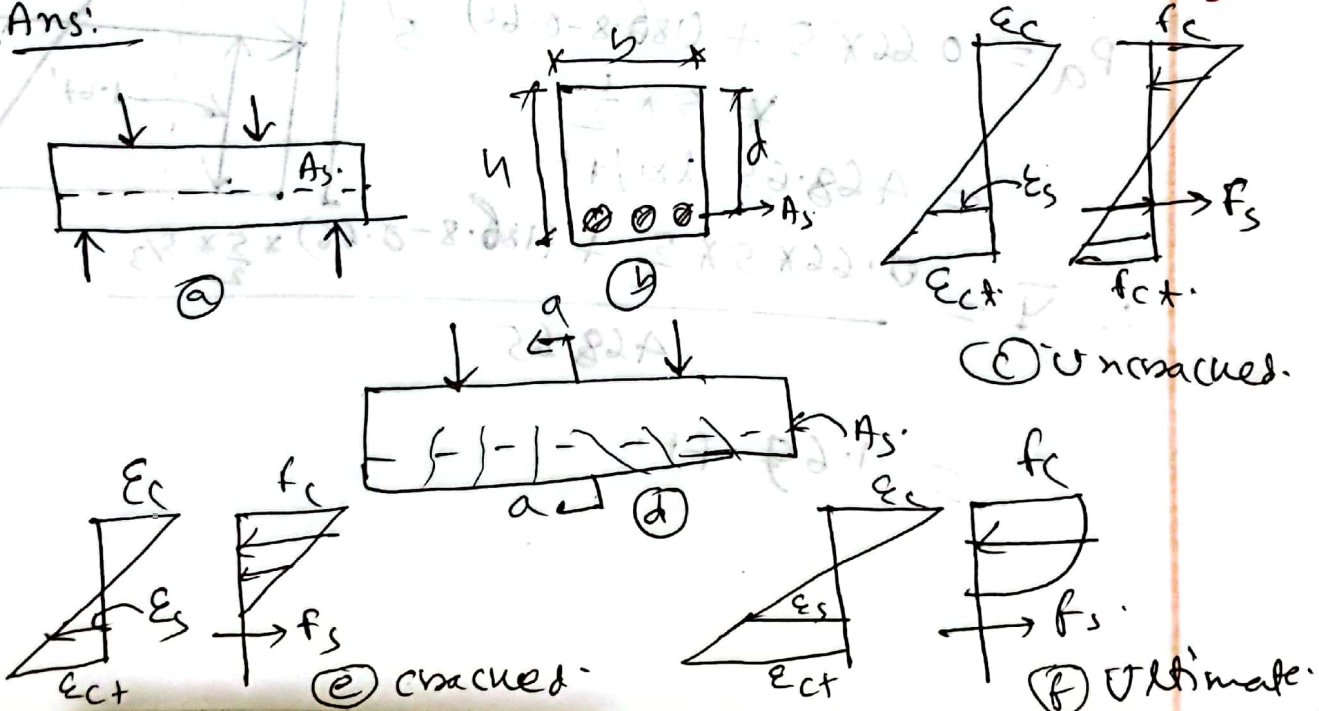 Ans:
b
h
d
As
As.
ⓐ
ⓑ
εc
fc
εs
Fs
εct.
fct.
ⓒ Uncracked.
a
As.
a
ⓓ
εc
fc
εs
fs
εct
ⓔ cracked.
εc
fc
εs
fs.
εct
ⓕ Ultimate.